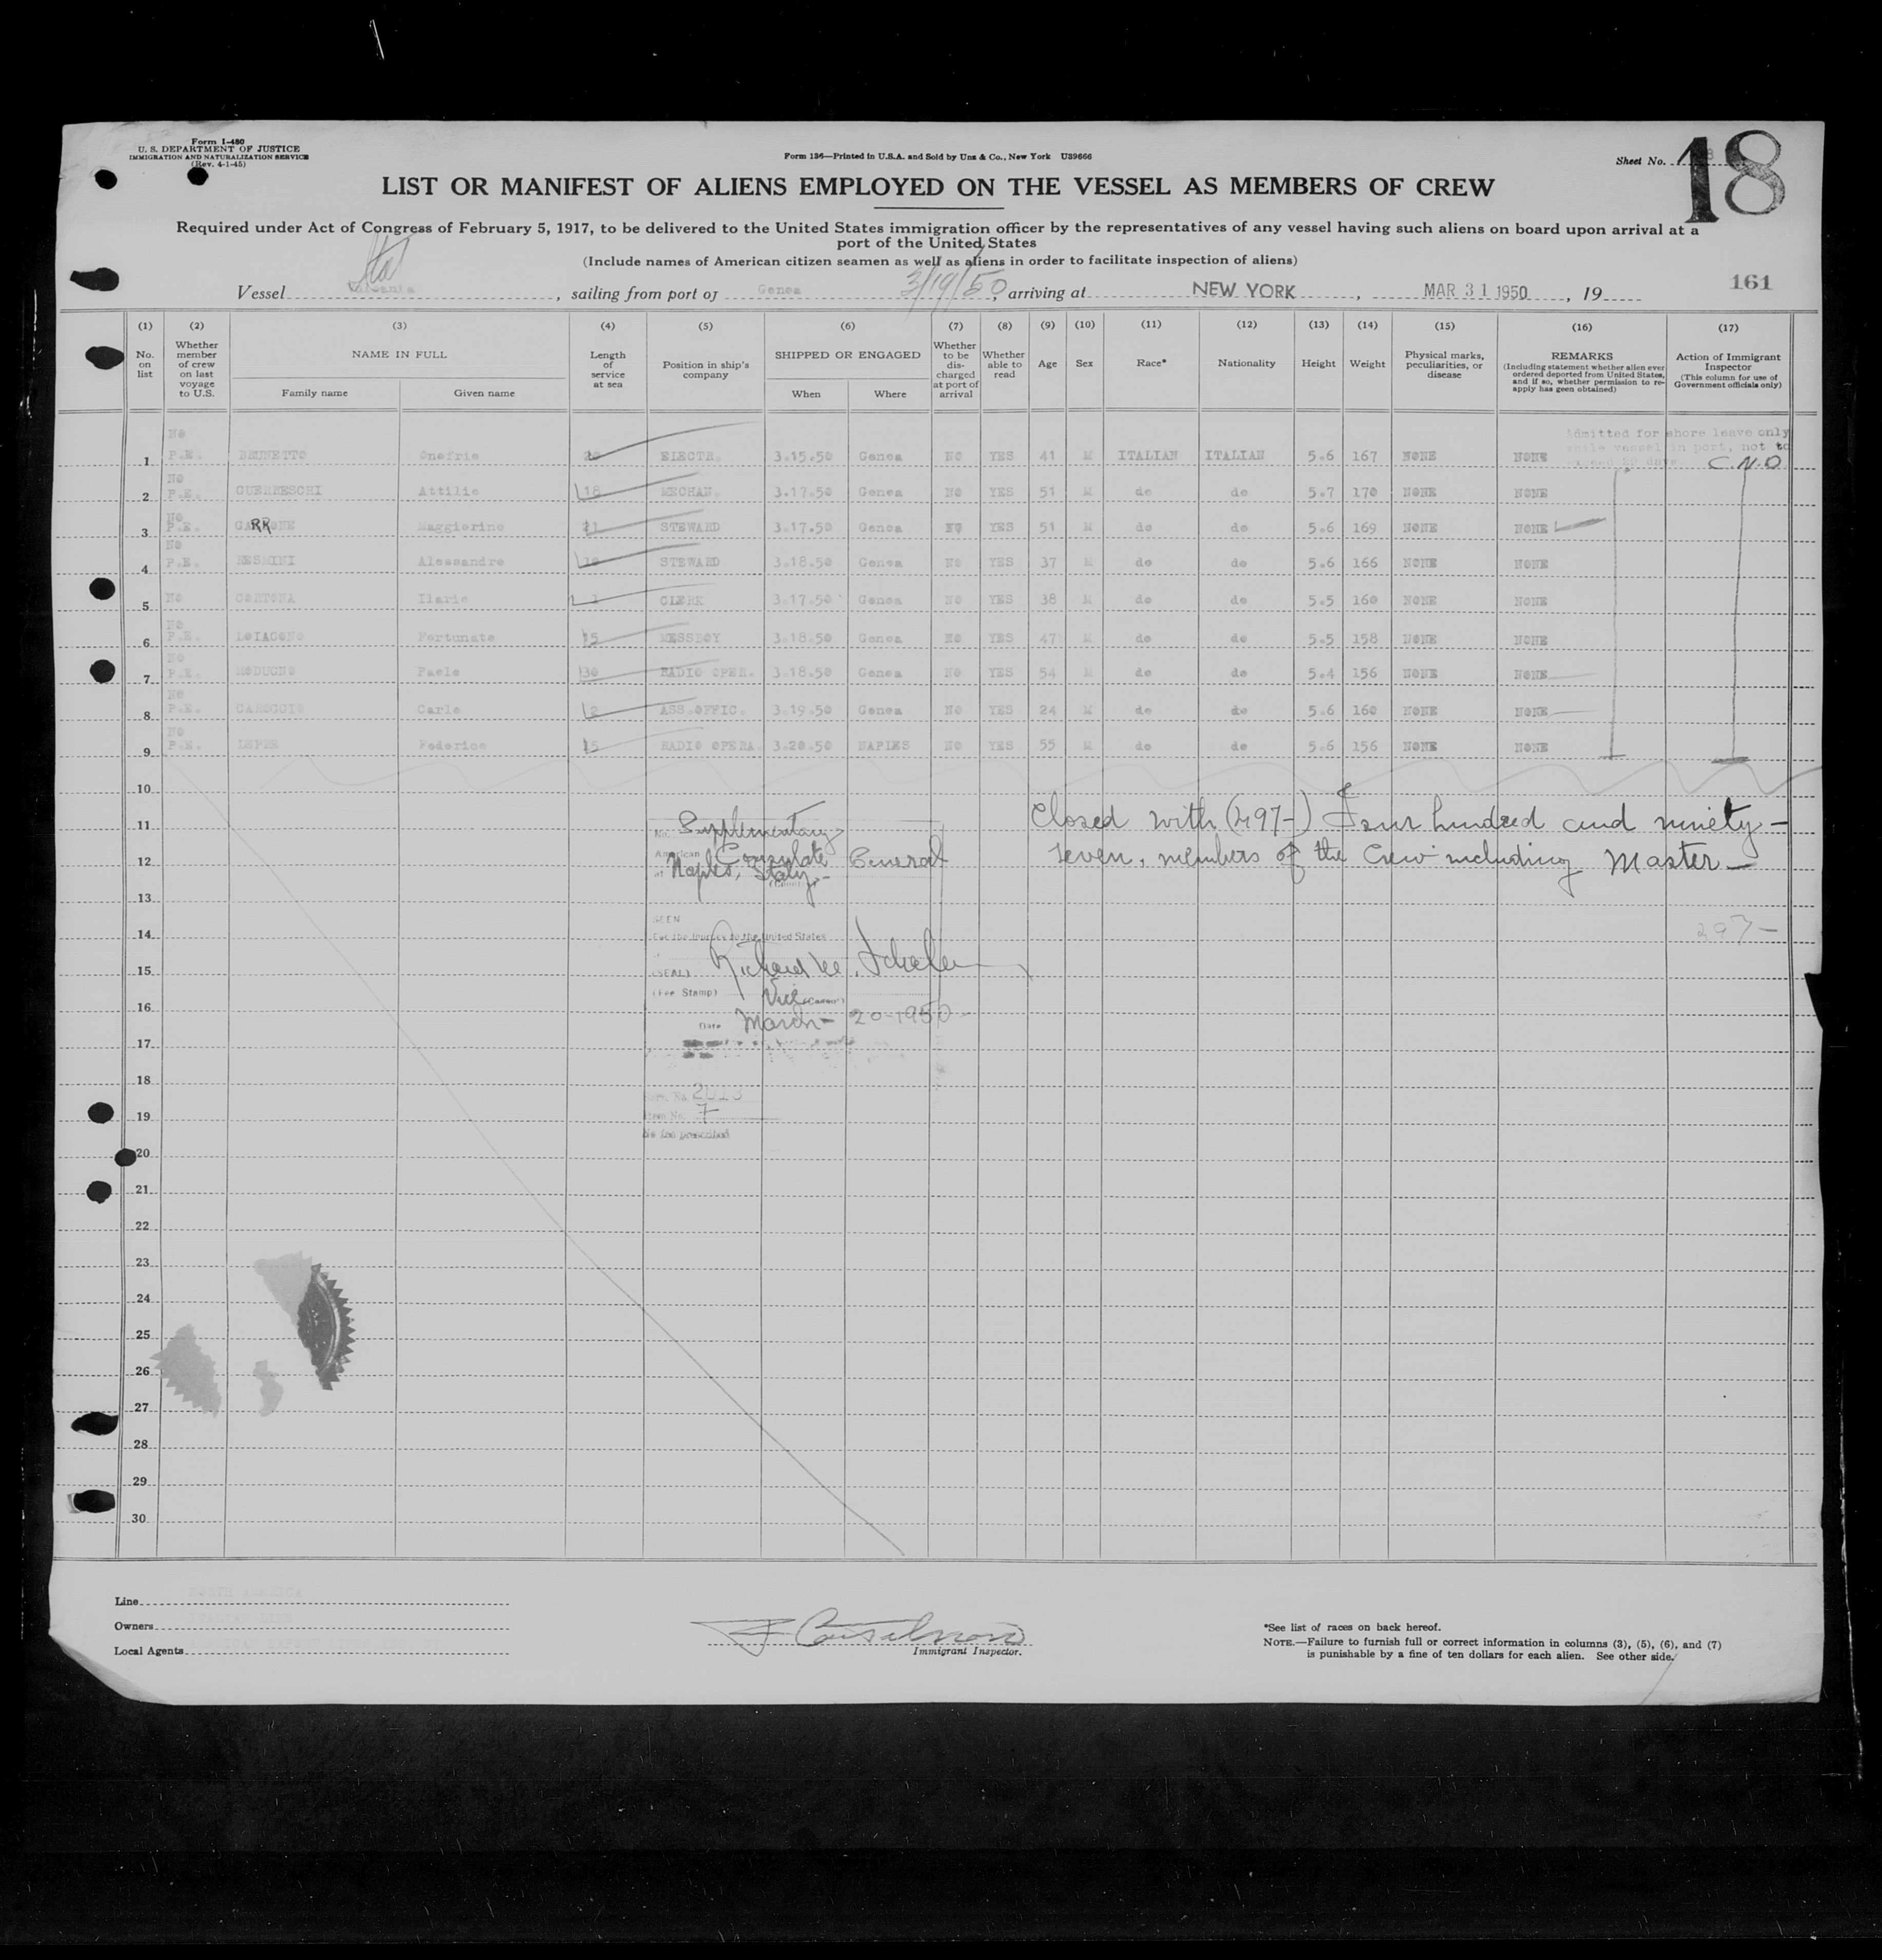 Form I-480
U. S. DEPARTMENT OF JUSTICE
IMMIGRATION AND NATURALIZATION SERVICE
(Rev. 4-1-45)
Form 136—Printed in U.S.A. and Sold by Unz & Co., New York U39666
Sheet No. 18
LIST OR MANIFEST OF ALIENS EMPLOYED ON THE VESSEL AS MEMBERS OF CREW
Required under Act of Congress of February 5, 1917, to be delivered to the United States immigration officer by the representatives of any vessel having such aliens on board upon arrival at a
port of the United States
(Include names of American citizen seamen as well as aliens in order to facilitate inspection of aliens)
161
Vessel , sailing from port of Genoa 3/19/50, arriving at NEW YORK, MAR 31 1950, 19
(1) (2) (3) (4) (5) (6) (7) (8) (9) (10) (11) (12) (13) (14) (15) (16) (17)
No. on list
Whether member of crew on last voyage to U.S.
NAME IN FULL
Family name
Given name
Length of service at sea
Position in ship's company
SHIPPED OR ENGAGED
When
Where
Whether to be discharged at port of arrival
Whether able to read
Age
Sex
Race*
Nationality
Height
Weight
Physical marks, peculiarities, or disease
REMARKS
(Including statement whether alien ever ordered deported from United States, and if so, whether permission to re-apply has geen obtained)
Action of Immigrant Inspector
(This column for use of Government officials only)
Admitted for shore leave only
while vessel in port, not to
exceed 29 days. C.N.O
1 No P.E. BRUNETTO Onofrio ELECTR. 3.15.50 Genoa NO YES 41 M ITALIAN ITALIAN 5.6 167 NONE NONE
2 No P.E. GUERRESCHI Attilio 18 MECHAN. 3.17.50 Genoa NO YES 51 M do do 5.7 170 NONE NONE
3 No P.E. GARRONE Maggiorino 21 STEWARD 3.17.50 Genoa NO YES 51 M do do 5.6 169 NONE NONE
4 No P.E. RESMINI Alessandro STEWARD 3.18.50 Genoa NO YES 37 M do do 5.6 166 NONE NONE
5 No CORTONA Ilario CLERK 3.17.50 Genoa NO YES 38 M do do 5.5 160 NONE NONE
6 No P.E. LOIACONO Fortunato 15 MESSBOY 3.18.50 Genoa NO YES 47 M do do 5.5 158 NONE NONE
7 No P.E. MODUGNO Paolo 30 RADIO OPER. 3.18.50 Genoa NO YES 54 M do do 5.4 156 NONE NONE
8 No P.E. CAROGGIO Carlo 2 ASS.OFFIC. 3.19.50 Genoa NO YES 24 M do do 5.6 160 NONE NONE
9 No P.E. Federico 15 RADIO OPERA. 3.20.50 NAPLES NO YES 55 M do do 5.6 156 NONE NONE
10
11 No. Supplementary Closed with (497-) Four hundred and ninety-
12 American Consulate General seven, members of the Crew including Master-
at Naples, Italy.-
13
SEEN
14 For the journey to the United States
15 (SEAL) Richard
(Fee Stamp) Vice (Consul)
16
Date March- 20-1950-
17
18
19 Item No. 7
No fee prescribed
20
21
22
23
24
25
26
27
28
29
30
Line NORTH AMERICA
Owners ITALIAN LINE
Local Agents
Immigrant Inspector.
*See list of races on back hereof.
NOTE.—Failure to furnish full or correct information in columns (3), (5), (6), and (7)
is punishable by a fine of ten dollars for each alien. See other side.